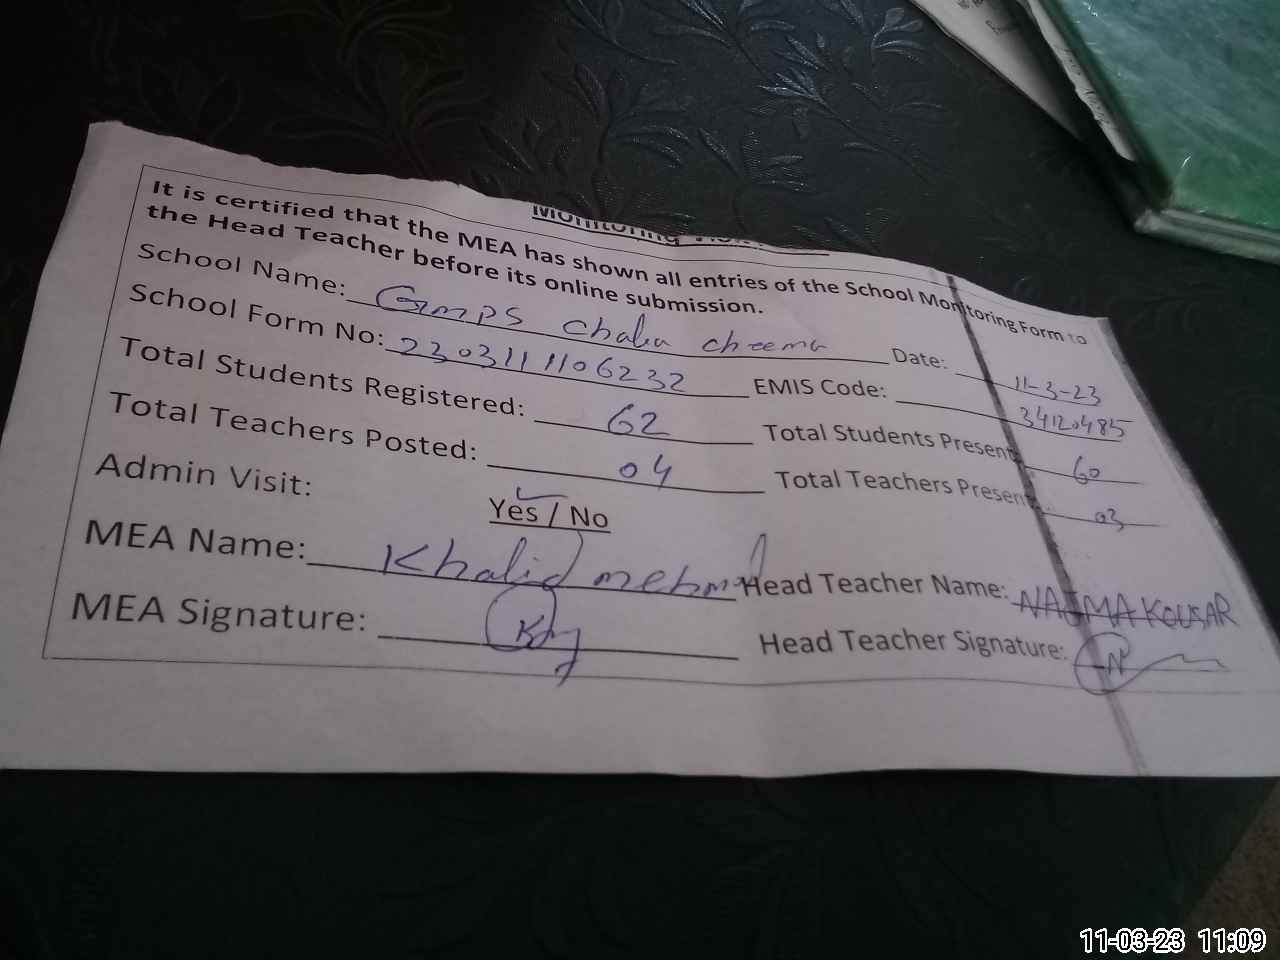 Monitoring
It is certified that the MEA has shown all entries of the School Monitoring Form to
the Head Teacher before its online submission.
School Name: GMPS Chalia cheema Date: 11-3-23
School Form No: 230311106232 EMIS Code: 34120485
Total Students Registered: 62 Total Students Present: 60
Total Teachers Posted: 04 Total Teachers Present: 03
Admin Visit: Yes / No
MEA Name: Khalid mehmod Head Teacher Name: NAJMA KOUSAR
MEA Signature: Head Teacher Signature:
11-03-23 11:09